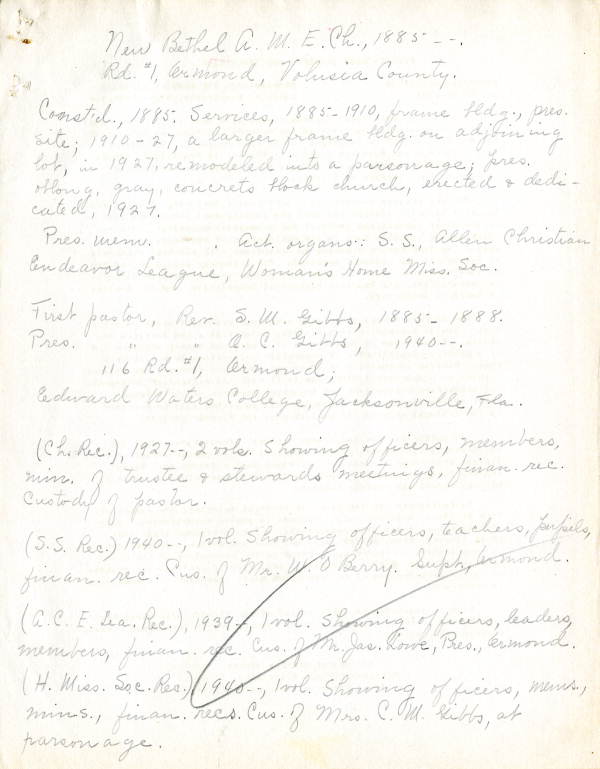 New Bethel A. M. E. Ch., 1885 --.
Rd. #1, Ormond, Volusia County.
Const'd., 1885. Services, 1885-1910, frame bldg., pres.
site; 1910-27, a larger frame bldg. on adjoining
lot, in 1927, remodeled into a parsonage; pres.
oblong, gray, concrete block church, erected & dedi-
cated, 1927.
Pres. mem. . Act. organs.: S.S., Allen Christian
Endeavor League, Woman's Home Miss. Soc.
First pastor, Rev. S. M. Gibbs, 1885-1888.
Pres. " " A. C. Gibbs, 1940--.
116 Rd. #1, Ormond;
Edward Waters College, Jacksonville, Fla.
(Ch. Rec.), 1927--, 2 vols. Showing officers, members,
min. of trustee & stewards meetings, finan. rec.
Custody of pastor.
(S.S. Rec.) 1940--, 1 vol. Showing officers, teachers, pupils,
finan. rec. Cus. of Mr. W. O Berry. Suph, Ormond.
(A. C. E. Lea. Rec.), 1939--, 1 vol. Showing officers, leaders,
members, finan. rec. Cus. of Mr. Jas. Lowe, Pres., Ormond.
(H. Miss. Soc. Res.) 1940--, 1 vol. Showing officers, mems.,
mins., finan. recs. Cus. of Mrs. C. M. Gibbs, at
parsonage.